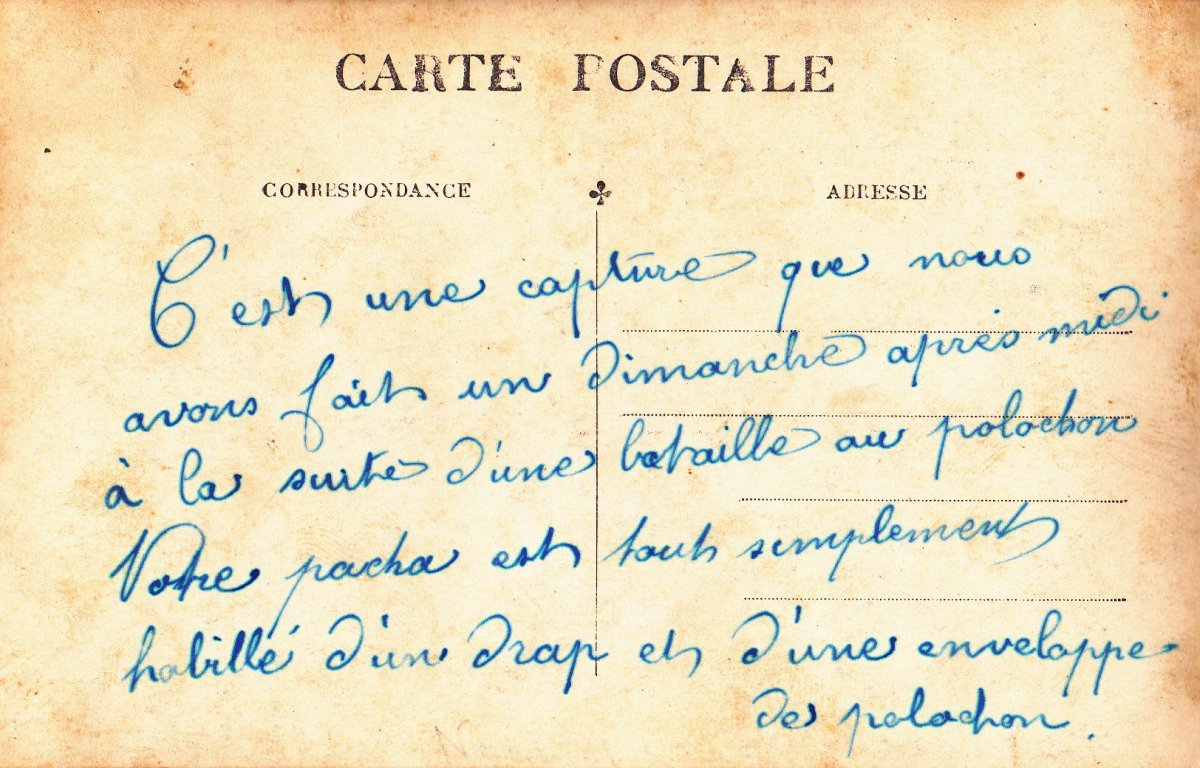 CARTE POSTALE
CORRESPONDANCE
ADRESSE
C'est une capture que nous
avons fait un dimanche après midi
à la suite d'une bataille au polochon
Votre pacha est tout simplement
habillé d'un drap et d'une enveloppe
de polochon.